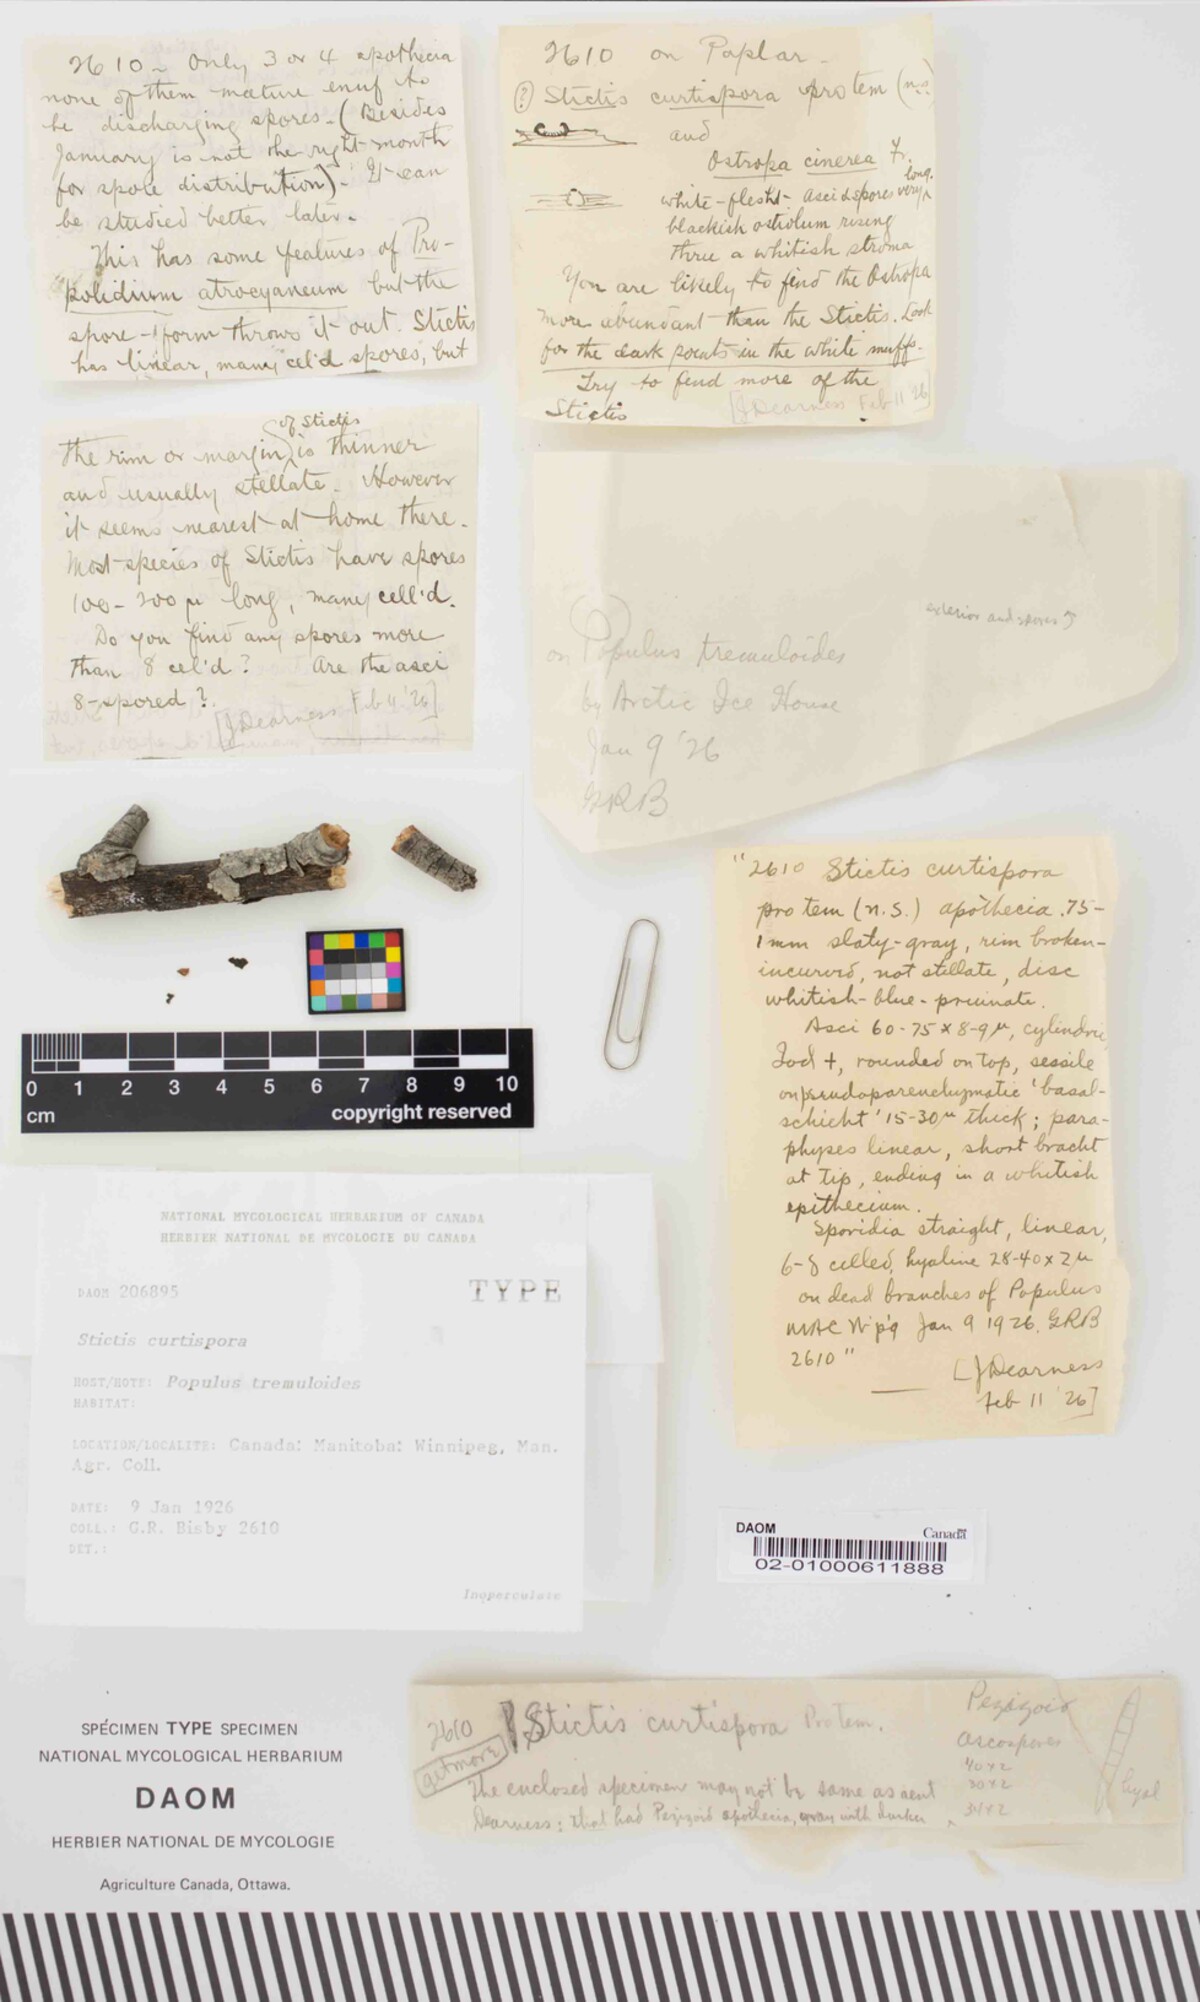 2610 - Only 3 or 4 apothecia
none of them mature enuf to
be discharging spores - (Besides
January is not the right month
for spore distribution). It can
be studied better later.
This has some features of Pro-
polidium atrocyaneum but the
spore-form throws it out. Stictis
has linear, many cel'd spores, but
2610 on Poplar -
(?) Stictis curtispora pro tem (n.s.)
and
Ostropa cinerea Fr.
long.
white-flesht - Asci & spores very
blackish ostiolum rising
thru a whitish stroma
You are likely to find the Ostropa
more abundant than the Stictis. Look
for the dark points in the white muffs.
Try to find more of the
Stictis [J Dearness Feb 11 '26]
of Stictis
the rim or margin is thinner
and usually stellate. However
it seems nearest at home there.
Most species of Stictis have spores
100-200 µ long, many cell'd.
Do you find any spores more
than 8 cel'd? Are the asci
8-spored?
[J Dearness Feb 11 '26]
exterior and spores
on Populus tremuloides
by Arctic Ice House
Jan 9 '26
GRB
"2610 Stictis curtispora
pro tem (n.s.) apothecia .75-
1 mm slaty-gray, rim broken-
incurved, not stellate, disc
whitish-blue-pruinate.
Asci 60-75 x 8-9µ, cylindric
Iod +, rounded on top, sessile
on pseudoparenchymatic 'basal-
schicht' 15-30µ thick; para-
physes linear, short bracht
at tip, ending in a whitish
epithecium.
Sporidia straight, linear,
6-8 celled, hyaline 28-40 x 2µ
on dead branches of Populus
MAC W'p'g Jan 9 1926. GRB
2610"
[J Dearness
Feb 11 '26]
0 1 2 3 4 5 6 7 8 9 10
cm copyright reserved
NATIONAL MYCOLOGICAL HERBARIUM OF CANADA
HERBIER NATIONAL DE MYCOLOGIE DU CANADA
DAOM 206895 TYPE
Stictis curtispora
HOST/HOTE: Populus tremuloides
HABITAT:
LOCATION/LOCALITE: Canada: Manitoba: Winnipeg, Man.
Agr. Coll.
DATE: 9 Jan 1926
COLL.: G.R. Bisby 2610
DET.:
Inoperculate
DAOM Canada
02-01000611888
2610 Stictis curtispora Pro tem.
get more
The enclosed specimen may not be same as sent
Dearness: that had Pezizoid apothecia, gray with darker
Pezizoid
ascospores
40x2
30x2
34x2
hyal
SPÉCIMEN TYPE SPECIMEN
NATIONAL MYCOLOGICAL HERBARIUM
DAOM
HERBIER NATIONAL DE MYCOLOGIE
Agriculture Canada, Ottawa.